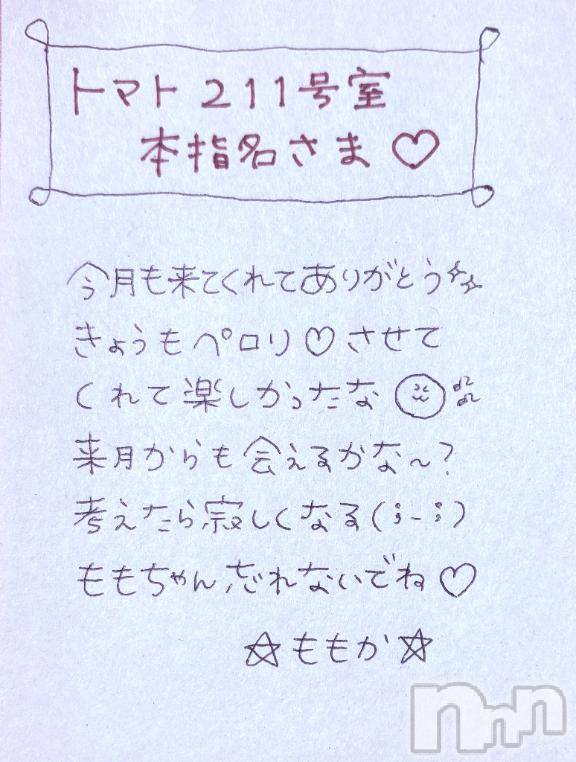 トマト211号室
本指名さま♡
今月も来てくれてありがとう
きょうもペロリ♡させて
くれて楽しかったな
来月からも会えるかな〜？
考えたら寂しくなる(;_;)
ももちゃん忘れないでね♡
☆ももか☆
nnn